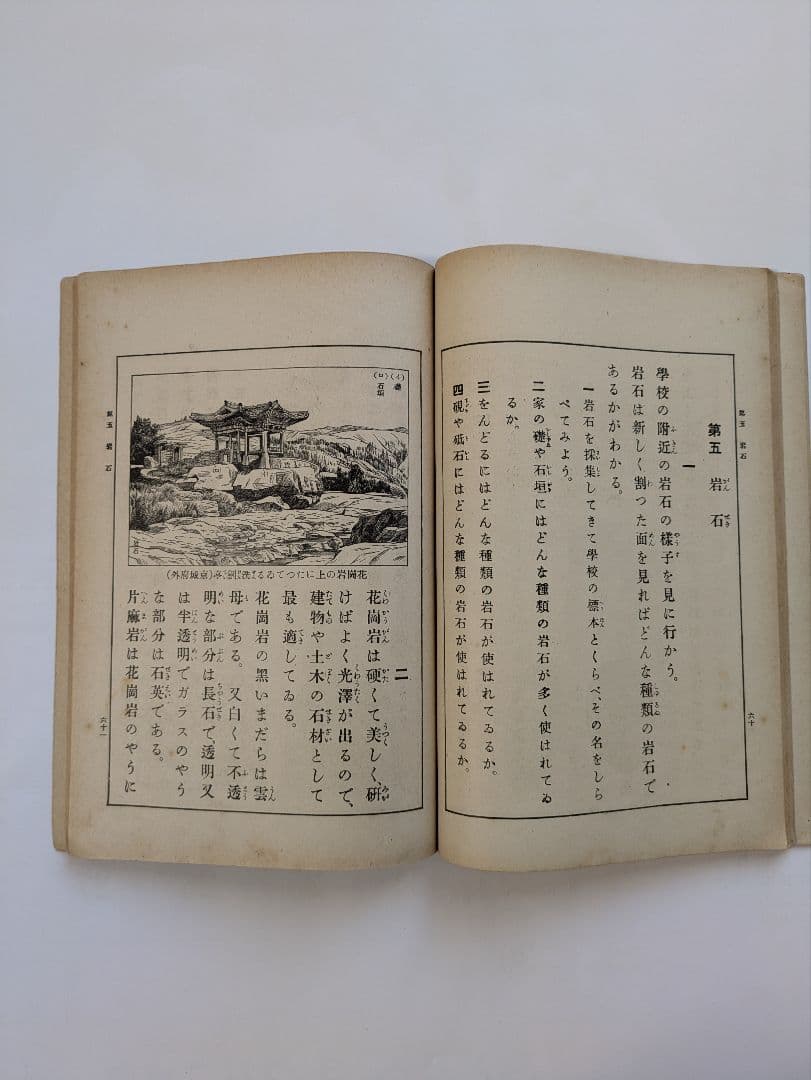 第五 岩石
第五 岩石
一
學校の附近の岩石の樣子を見に行かう。
岩石は新しく割つた面を見ればどんな種類の岩石で
あるかがわかる。
一 岩石を採集してきて學校の標本とくらべ、その名をしら
べてみよう。
二 家の礎や石垣にはどんな種類の岩石が多く使はれてゐ
るか。
三 をんどるにはどんな種類の岩石が使はれてゐるか。
四 硯や砥石にはどんな種類の岩石が使はれてゐるか。
六十
(イ)礎
(ロ)石垣
花崗岩の上にたつてゐる洗劍亭(京城府外)
二
花崗岩は硬くて美しく、研
けばよく光澤が出るので、
建物や土木の石材として
最も適してゐる。
花崗岩の黑いまだらは雲
母である。又白くて不透
明な部分は長石で、透明又
は半透明でガラスのやう
な部分は石英である。
片麻岩は花崗岩のやうに
第五 岩石
六十一